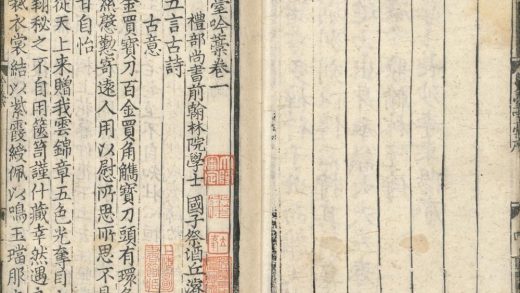 臺吟藁卷一
禮部尚書前翰林院學士 國子祭酒丘濬
五言古詩
古意
金買寶刀百金買角觽寶刀頭有環角
然慇懃寄遠人用以慰所思所思不見
甘自怡
從天上來贈我雲錦章五色光奪目
翔秘之不自用篋笥謹什藏幸然遇
我衣裳結以紫霞綬佩以鳴玉璫那